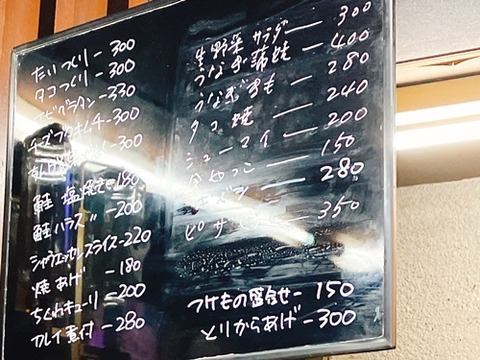 たいつくり-300
タコつくり-300
エビグラタン-330
チーズフタキムチ-300
-300
鮭 塩焼き-180
鮭ハラス〃-200
シャウエッセンスライス-220
焼あげ-180
ちくわキューリ-200
カレイ煮付-280
生野菜サラダー300
うなぎ蒲焼-400
うなぎきも-280
タコ焼-240
シューマイ-200
150
280
ピザ 350
つけもの盛合せ-150
とりからあげ-300